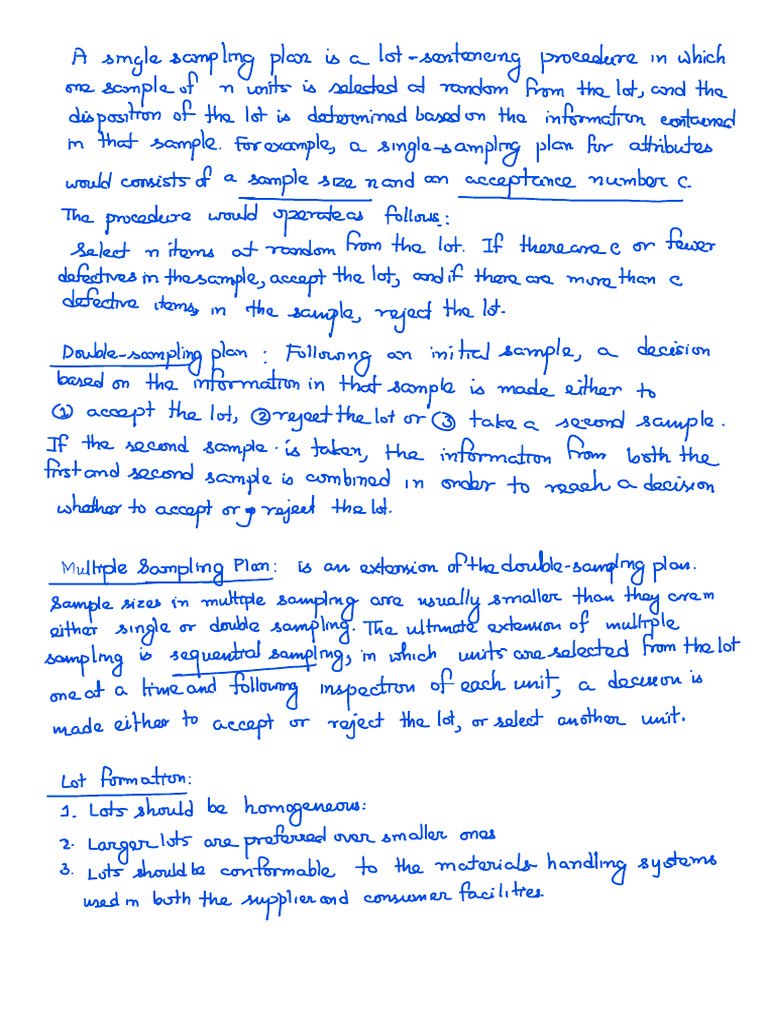 A single sampling plan is a lot-sentencing procedure in which
one sample of n units is selected at random from the lot, and the
disposition of the lot is determined based on the information contained
in that sample. For example, a single-sampling plan for attributes
would consists of a sample size n and an acceptance number c.
The procedure would operate as follows:
Select n items at random from the lot. If there are c or fewer
defectives in the sample, accept the lot, and if there are more than c
defective items, in the sample, reject the lot.
Double-sampling plan: Following an initial sample, a decision
based on the information in that sample is made either to
① accept the lot, ② reject the lot or ③ take a second sample.
If the second sample is taken, the information from both the
first and second sample is combined in order to reach a decision
whether to accept or reject the lot.
Multiple Sampling Plan: is an extension of the double-sampling plan.
Sample sizes in multiple sampling are usually smaller than they are in
either single or double sampling. The ultimate extension of multiple
sampling is sequential sampling, in which units are selected from the lot
one at a time and following inspection of each unit, a decision is
made either to accept or reject the lot, or select another unit.
Lot Formation:
1. Lots should be homogeneous:
2. Larger lots are preferred over smaller ones
3. Lots should be conformable to the materials-handling systems
used in both the supplier and consumer facilities.